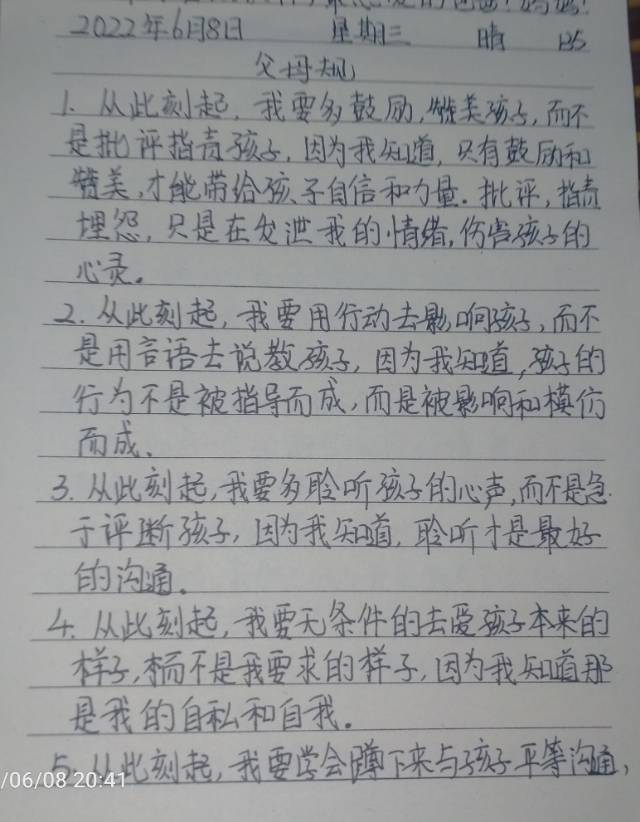 2022年6月8日 星期三 晴
父母规
1. 从此刻起，我要多鼓励，赞美孩子，而不
是批评指责孩子，因为我知道，只有鼓励和
赞美，才能带给孩子自信和力量．批评，指责
埋怨，只是在发泄我的情绪，伤害孩子的
心灵。
2. 从此刻起，我要用行动去影响孩子，而不
是用言语去说教孩子，因为我知道，孩子的
行为不是被指导而成，而是被影响和模仿
而成、
3. 从此刻起，我要多聆听孩子的心声，而不是急
于评断孩子，因为我知道，聆听才是最好
的沟通。
4. 从此刻起，我要无条件的去爱孩子本来的
样子，而不是我要求的样子，因为我知道那
是我的自私和自我。
5. 从此刻起，我要学会蹲下来与孩子平等沟通，
/06/08 20:41